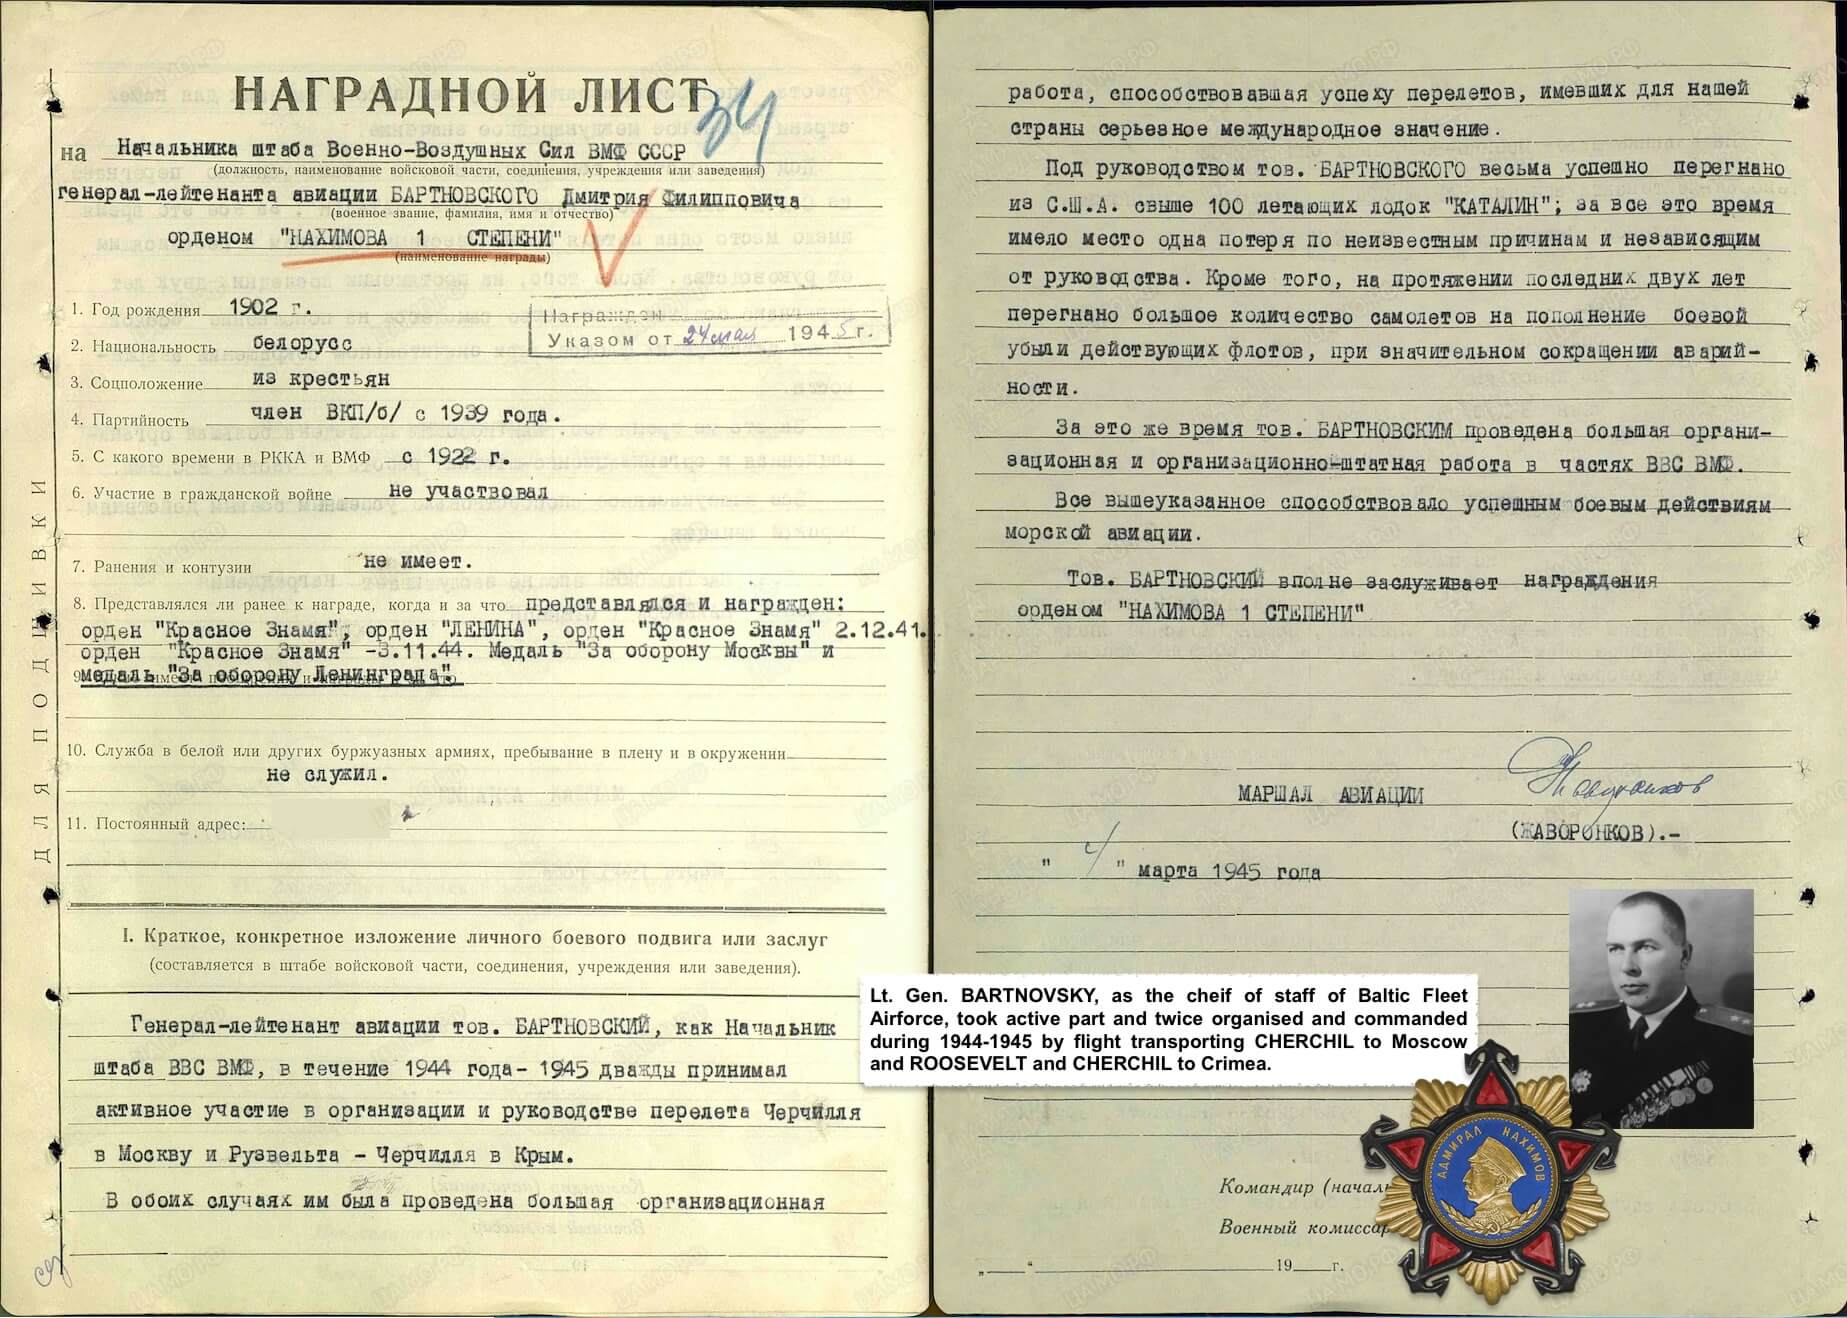 НАГРАДНОЙ ЛИСТ
34
на Начальника штаба Военно-Воздушных Сил ВМФ СССР
(должность, наименование войсковой части, соединения, учреждения или заведения)
генерал-лейтенанта авиации БАРТНОВСКОГО Дмитрия Филипповича
(военное звание, фамилия, имя и отчество)
орденом "НАХИМОВА 1 СТЕПЕНИ"
(наименование награды)
1. Год рождения 1902 г.
Награжден
Указом от 24 мая 1945 г.
2. Национальность белорусс
3. Соцположение из крестьян
4. Партийность член ВКП/б/ с 1939 года.
5. С какого времени в РККА и ВМФ с 1922 г.
6. Участие в гражданской войне не участвовал
7. Ранения и контузии не имеет.
8. Представлялся ли ранее к награде, когда и за что представлялся и награжден:
орден "Красное Знамя", орден "ЛЕНИНА", орден "Красное Знамя" 2.12.41.
орден "Красное Знамя" -3.11.44. Медаль "За оборону Москвы" и
9. медаль "За оборону Ленинграда".
10. Служба в белой или других буржуазных армиях, пребывание в плену и в окружении
не служил.
11. Постоянный адрес:
ДЛЯ ПОДШИВКИ
I. Краткое, конкретное изложение личного боевого подвига или заслуг
(составляется в штабе войсковой части, соединения, учреждения или заведения).
Генерал-лейтенант авиации тов. БАРТНОВСКИЙ, как Начальник
штаба ВВС ВМФ, в течение 1944 года- 1945 дважды принимал
активное участие в организации и руководстве перелета Черчилля
в Москву и Рузвельта - Черчилля в Крым.
В обоих случаях им была проведена большая организационная
работа, способствовавшая успеху перелетов, имевших для нашей
страны серьезное международное значение.
Под руководством тов. БАРТНОВСКОГО весьма успешно перегнано
из С.Ш.А. свыше 100 летающих лодок "КАТАЛИН"; за все это время
имело место одна потеря по неизвестным причинам и независящим
от руководства. Кроме того, на протяжении последних двух лет
перегнано большое количество самолетов на пополнение боевой
убыли действующих флотов, при значительном сокращении аварий-
ности.
За это же время тов. БАРТНОВСКИМ проведена большая органи-
зационная и организационно-штатная работа в частях ВВС ВМФ.
Все вышеуказанное способствовало успешным боевым действиям
морской авиации.
Тов. БАРТНОВСКИЙ вполне заслуживает награждения
орденом "НАХИМОВА 1 СТЕПЕНИ"
МАРШАЛ АВИАЦИИ
(ЖАВОРОНКОВ).-
" 4 " марта 1945 года
Lt. Gen. BARTNOVSKY, as the cheif of staff of Baltic Fleet
Airforce, took active part and twice organised and commanded
during 1944-1945 by flight transporting CHERCHIL to Moscow
and ROOSEVELT and CHERCHIL to Crimea.
АДМИРАЛ НАХИМОВ
Командир (началь
Военный комиссар
„ “ 19 г.